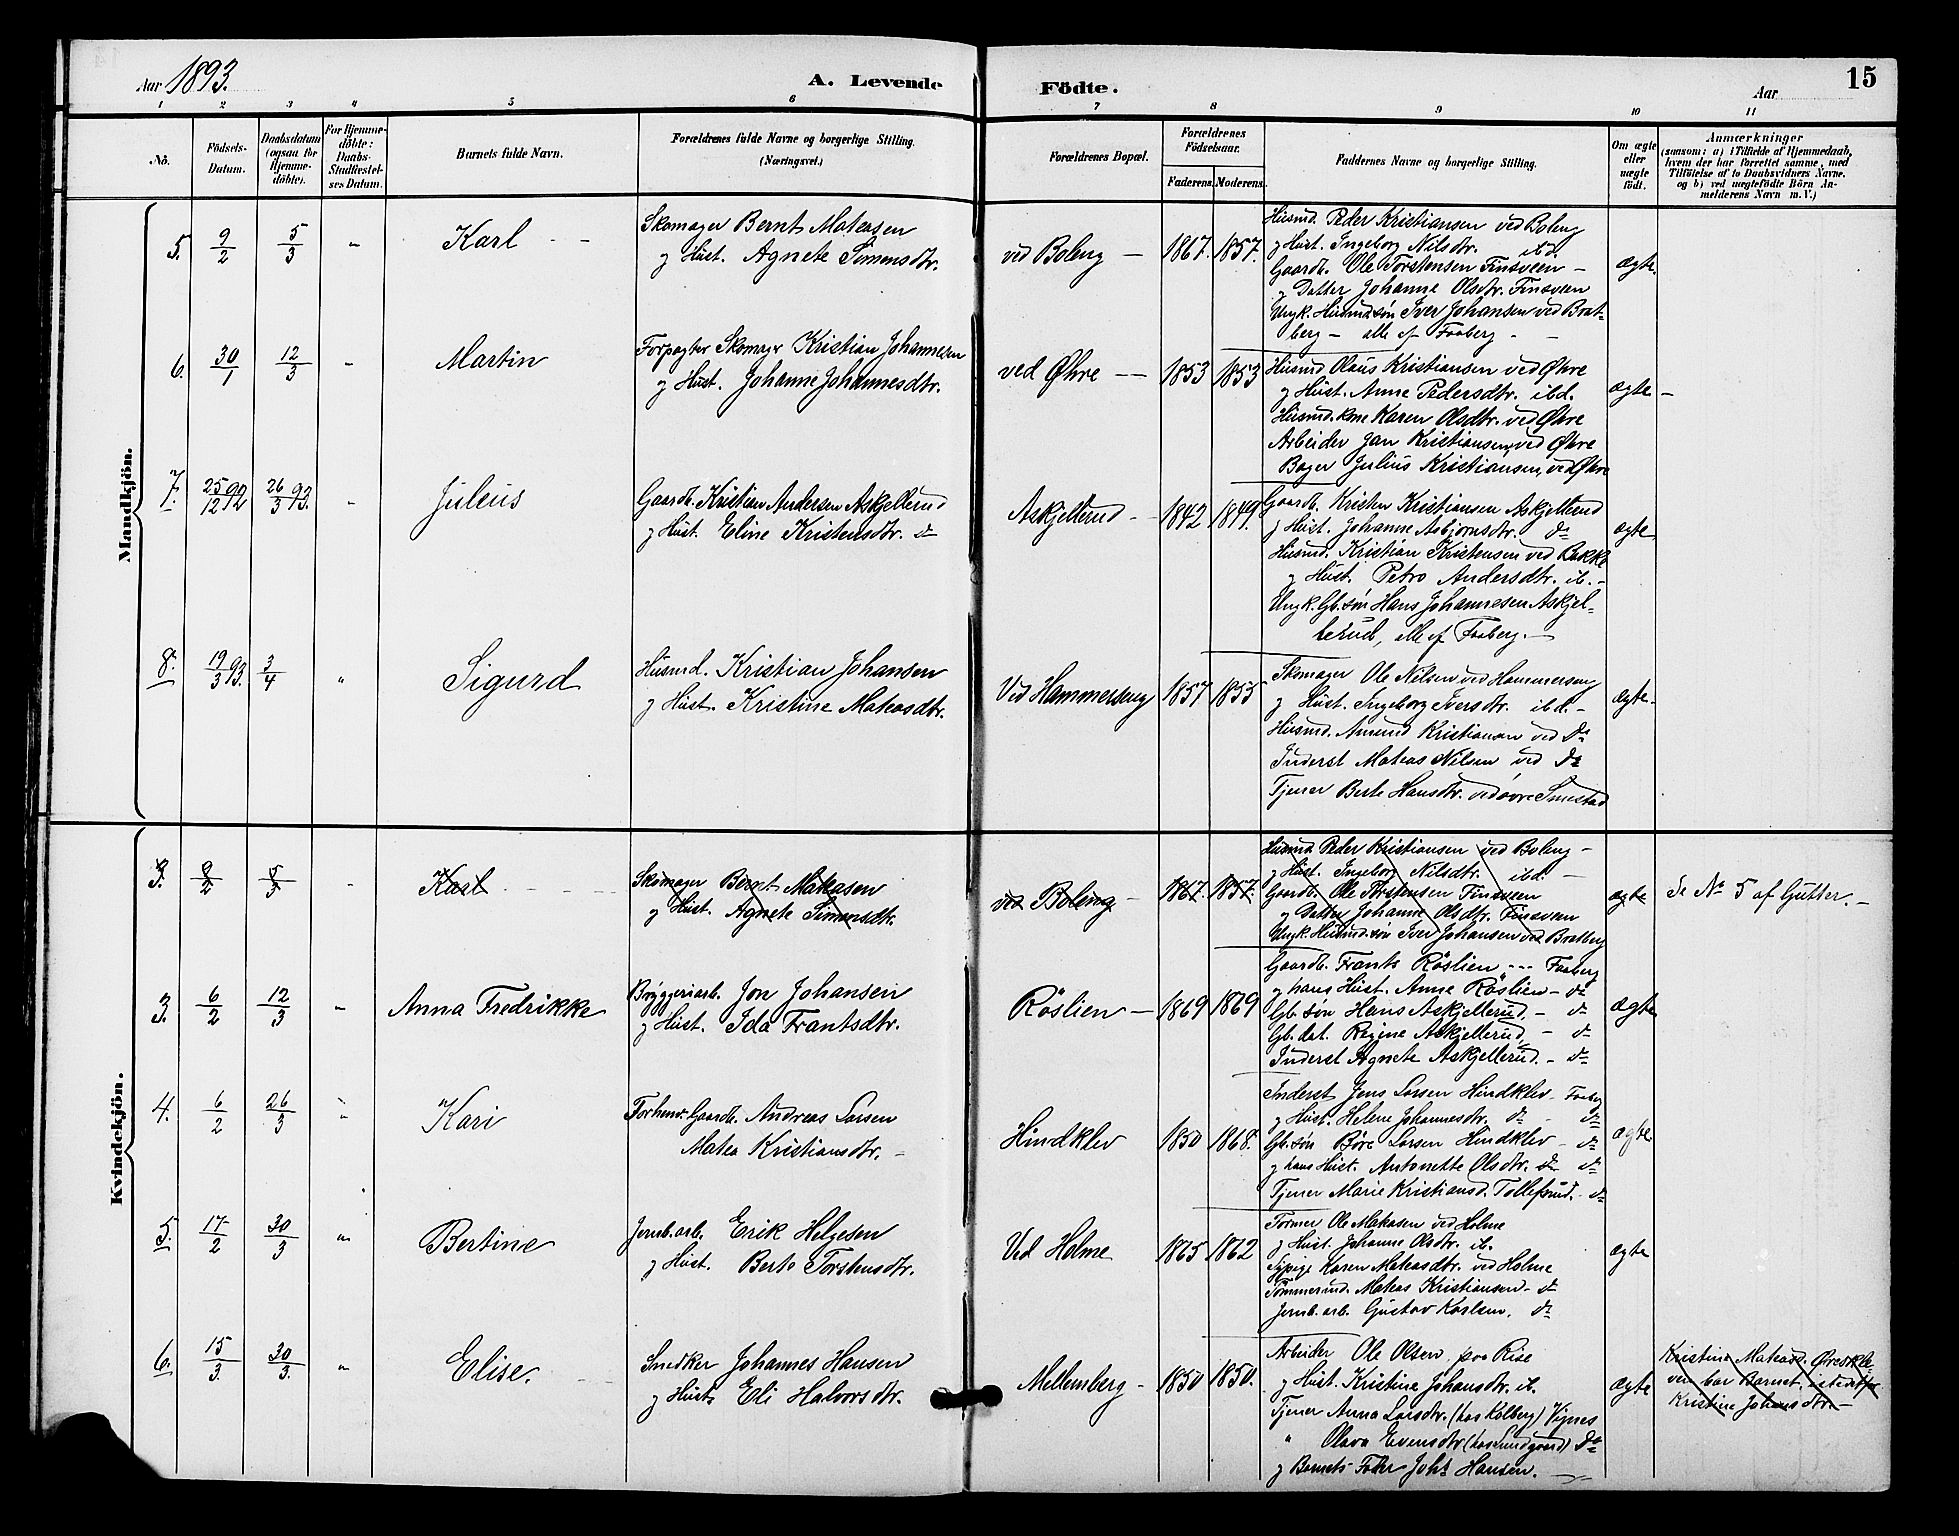 Aar 1893.
A. Levende Födte.
Aar
15
1 2 3 4 5 6 7 8 9 10 11
No.
Födsels-Datum.
Daabsdatum (ogsaa for Hjemme-döbte).
For Hjemme-döbte: Daabs-Stadfæstel-ses Datum.
Barnets fulde Navn.
Forældrenes fulde Navne og borgerlige Stilling. (Næringsvei.)
Forældrenes Bopæl.
Forældrenes Födselsaar.
Faderens. Moderens.
Faddernes Navne og borgerlige Stilling.
Om ægte eller uægte födt.
Anmærkninger
(saasom: a) i Tilfælde af Hjemmedaab, hvem der har forrettet samme, med Tilföielse af to Daabsvidners Navne. og b) ved uægtefödte Börn An-melderens Navn m. V.)
Mandkjön.
5. 9/2 5/3 " Karl
Skomager Bernt Mateasen
og Hust. Agnete Simensdtr.
ved Boleng — 1867. 1857.
Husmd. Peder Kristiansen ved Boleng
og Hust. Ingeborg Nilsdtr. ibd.
Gaardb. Ole Torstensen Finsveen —
og Datter Johanne Olsdtr. Finsveen
Ungk. Husmdsøn Iver Johansen ved Brat-
berg — alle af Faaberg —
ægte.
6. 30/1 12/3 " Martin
Forpagter Skomagr Kristian Johannesen
og Hust. Johanne Johannesdtr.
ved Øhre — 1853 1853
Husmd Olaus Kristiansen ved Øhre
og Hust. Anne Pedersdtr. ibd.
Husmd. kone Karen Olsdtr. ved Øhre
Arbeider Jan Kristiansen, ved Øhre
Bager Julius Kristiansen, ved Øhre
ægte —
7. 25/12 92 26/3 93. " Juleus
Gaardb. Kristian Andersen Askjellerud
og Hust. Eline Kristensdtr. do
Askjellerud — 1842 1849.
Gaardb. Kristen Kristiansen Askjellerud
og Hust. Johanne Asbjørnsdtr. do
Husmd. Kristian Kristensen ved Bakke
og Hust. Petro Andersdtr. ib. —
Ungk. Gb. søn Hans Johannesen Askjel-
lerud, alle af Faaberg. —
ægte
8. 19/3 93. 3/4 " Sigurd
Husmd. Kristian Johansen
og Hust. Kristine Mateasdtr.
Ved Hammerseng 1857 1855
Skomager Ole Nilsen ved Hammerseng
og Hust. Ingeborg Iversdtr. ibd. —
Husmd. Amund Kristiansen ved Do
Inderst Mateas Nilsen ved Do
Tjener Berte Hansdtr. ved øvre Smestad
ægte.
Kvindekjön.
3. 9/2 5/3 " Karl
Skomager Bernt Mateasen
og Hust. Agnete Simensdtr.
ved Boleng — 1867. 1857.
Husmd. Peder Kristiansen ved Boleng —
og Hust. Ingeborg Nilsdtr. ibd. —
Gaardb. Ole Torstensen Finsveen
og Datter Johanne Olsdtr. Finsveen
Ungk. Husmd. søn Iver Johansen ved Bratberg
ægte
Se No 5 af Gutter. —
3. 6/2 12/3 " Anna Fredrikke
Bryggeriarb. Jon Johansen
og Hust. Ida Frantsdtr.
Röslien — 1869 1869
Gaardb. Frants Röslien --- Faaberg
og hans Hust. Anne Röslien — do
Gb. søn Hans Askjellerud, — do
Gb. dat. Regine Askjellerud, — do
Inderst Agnete Askjellerud. — do
ægte
4. 6/2 26/3 " Kari
Forhenv. Gaardb. Andreas Larsen
Matea Kristiansdtr. —
Hindklev 1850 1868.
Inderst Jens Larsen Hindklev — Faaberg
og Hust. Helene Johannesdtr. do — do
Gb. søn Böre Larsen Hindklev — do
og hans Hust. Antonette Olsdtr. do do
Tjener Marie Kristiansd. Tollefsrud. — do
ægte
5. 17/2 30/3 " Bertine
Jernb. arb. Erik Helgesen
og Hust. Berte Torstensdtr.
Ved Holme 1865 1862
Ole Mateasen ved Holme
og Hust. Johanne Olsdtr. ib.
Pige Karen Mateasdtr. ved Holme
Tømmermd. Mateas Kristiansen — do
Jernb. arb. Gustav Karlsen. do
ægte
6. 15/3. 30/3. " Elise.
Snedker Johannes Hansen
og Hust. Eli Halvorsdtr.
Mellemberg — 1850 1850.
Arbeider Ole Olsen paa Rise
og Hust. Kristine Johansdtr. ib.
Tjener Anna Larsdtr. (hos Kolberg) Vignes
" Olava Evensdtr (hos Lundgaard) Do
og Barnets Fader Johs Hansen. —
ægte
Kristine Mateasd. Øvreskle-
ven bar Barnet, istedetfor
Kristine Johansdtr. —